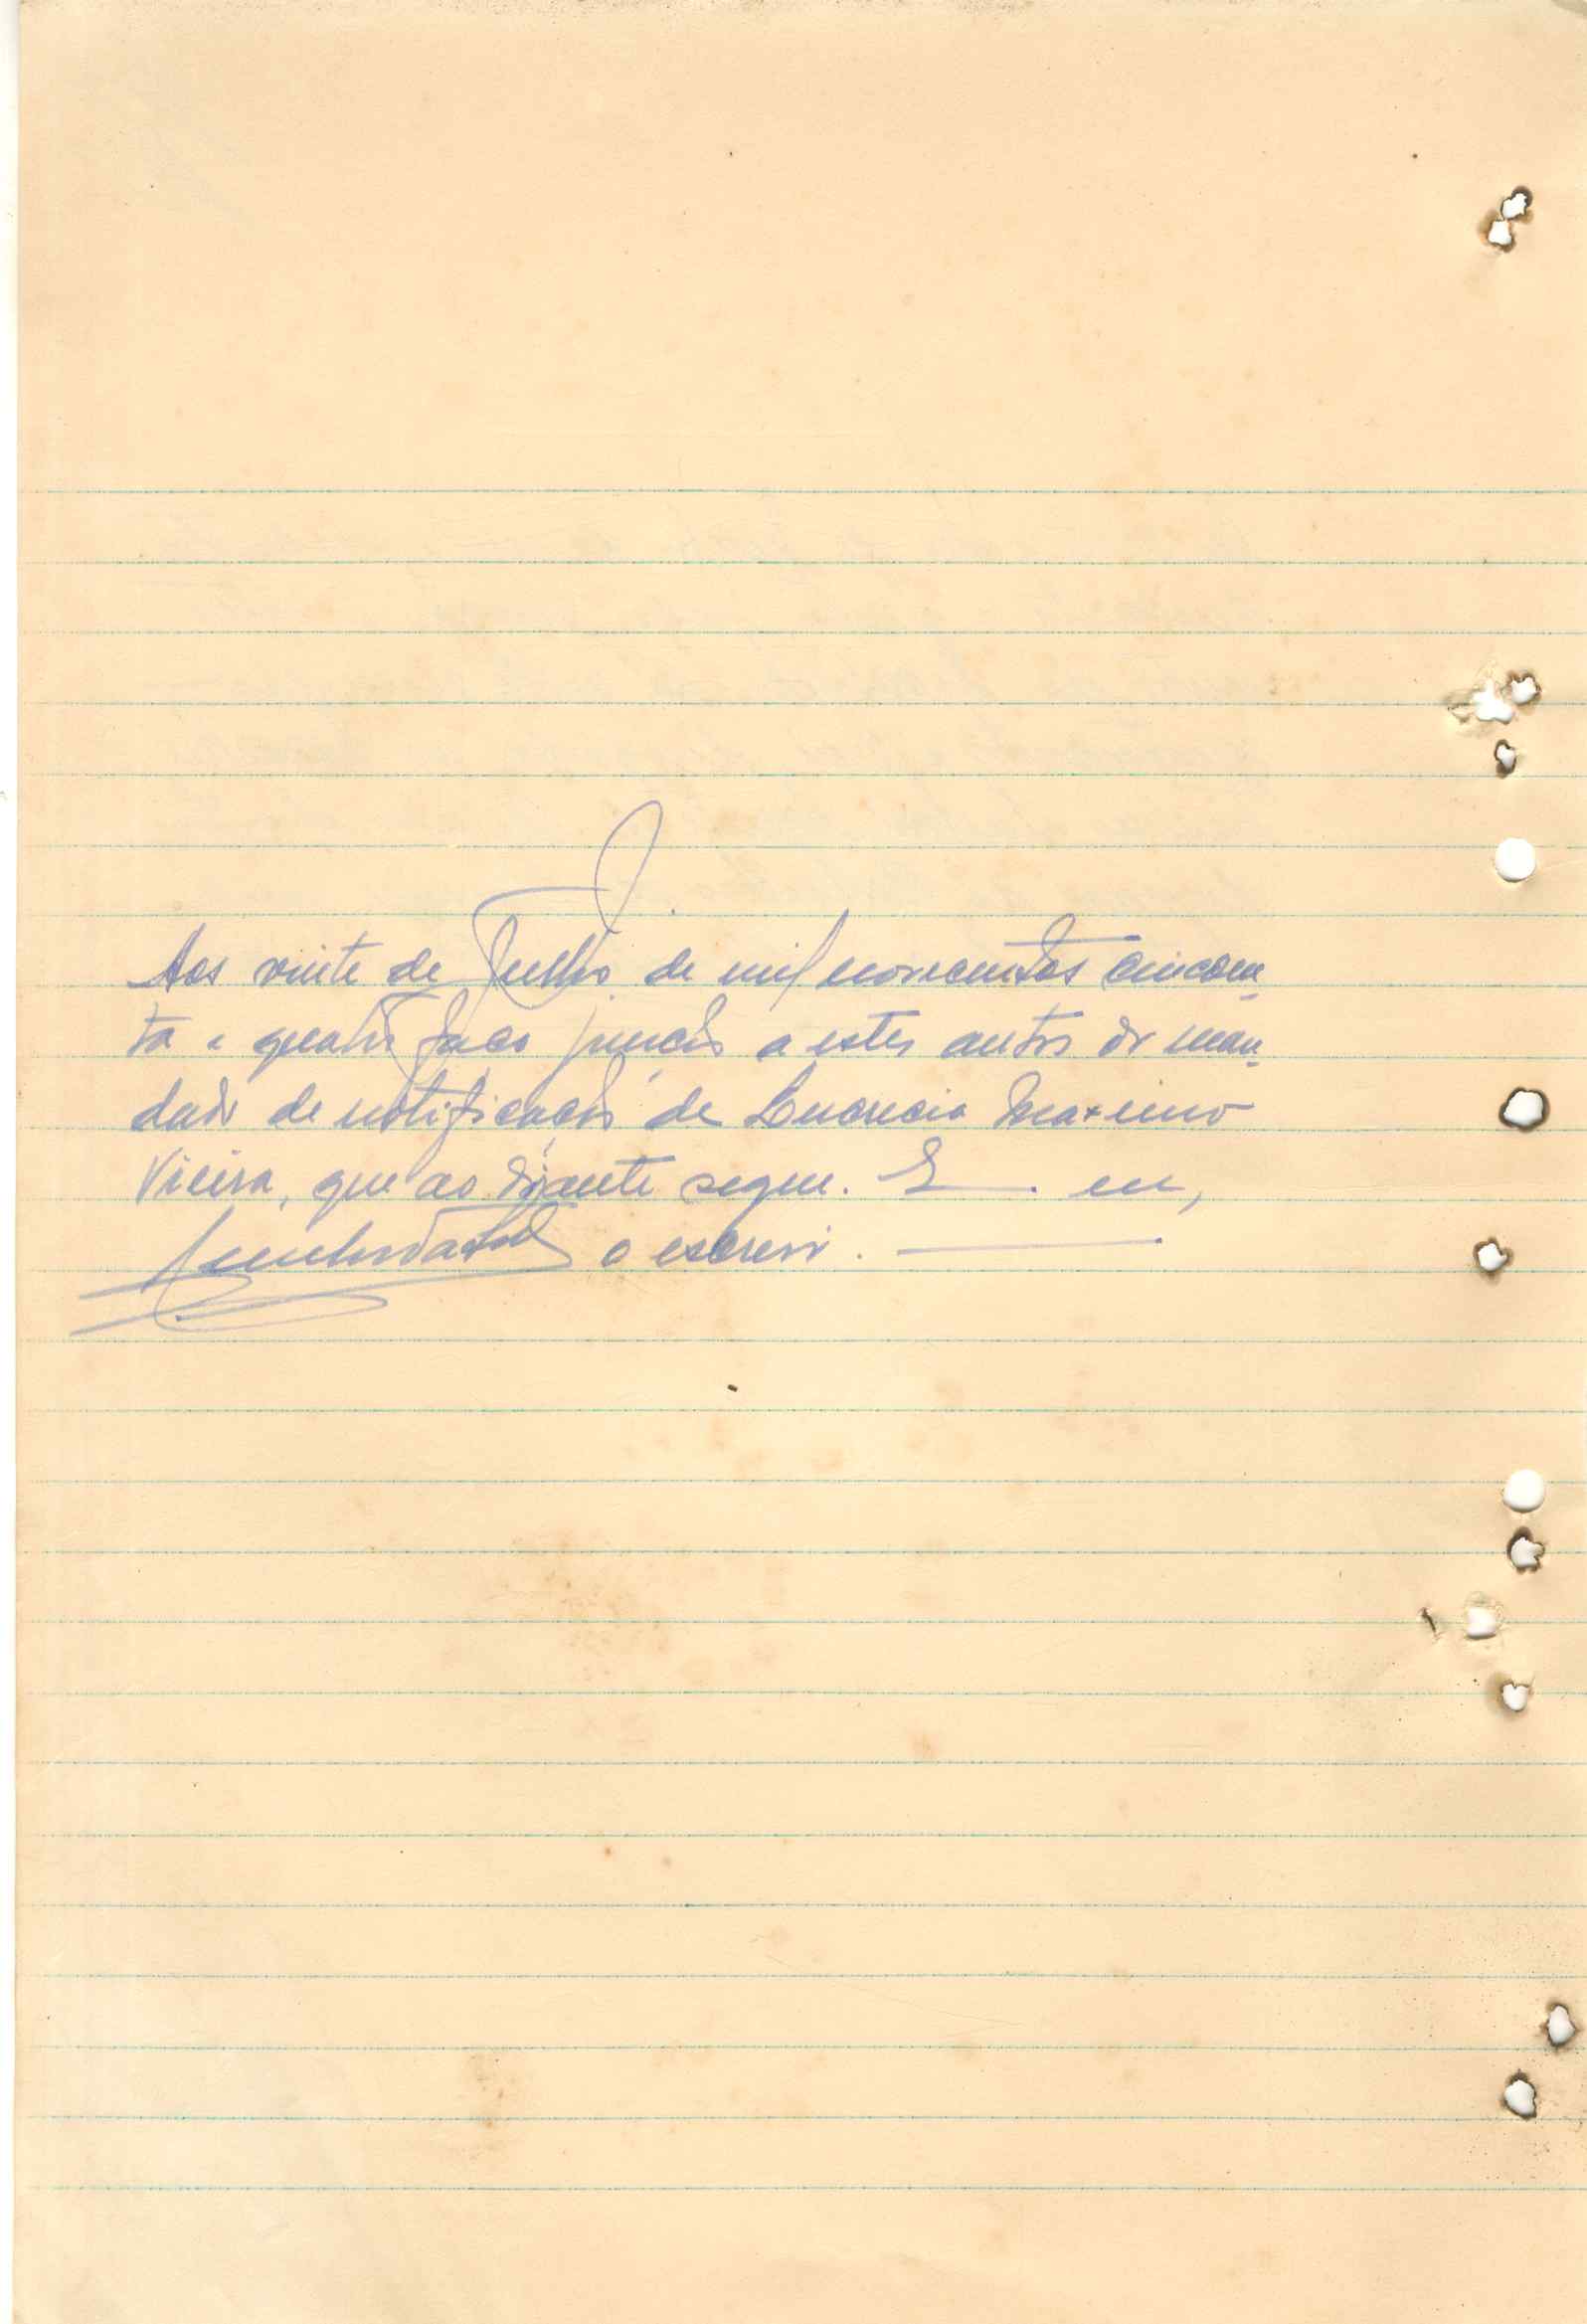 J.
Aos vinte de Julho de mil novecentos cincoen
ta e quatro faço junção a estes autos do man
dado de notificação de Lucrecia Maximo
Vieira, que ao diante segue. E. eu,
o escrevi.